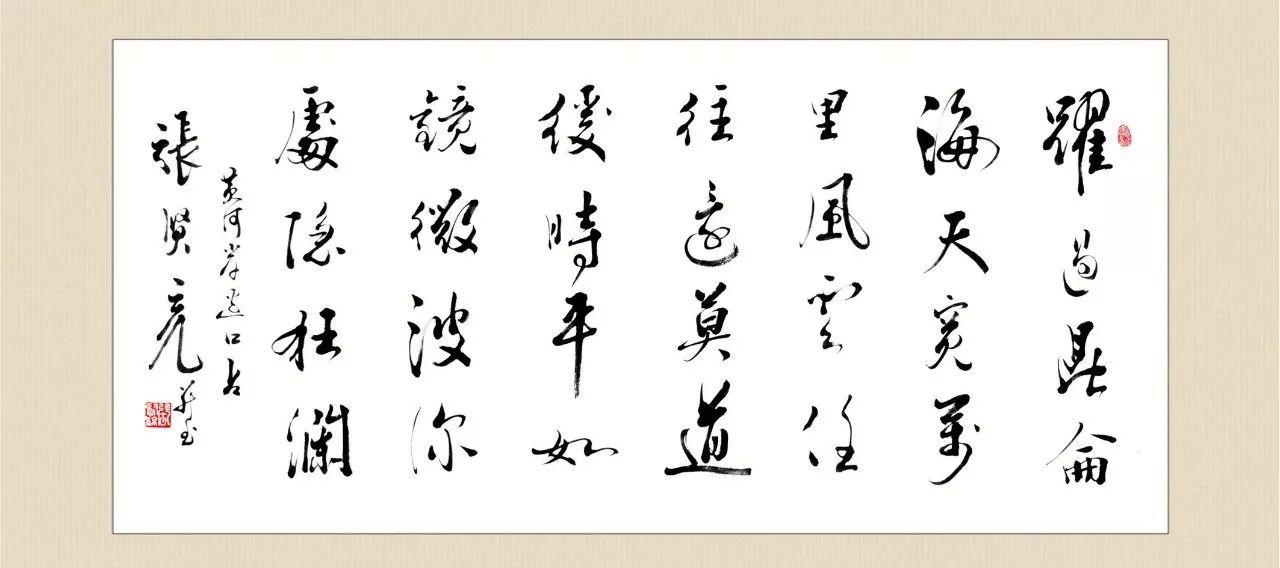 躍過昆侖
海天寬萬
里風雲任
往還莫道
緩時平如
鏡微波深
處隱狂瀾
黃河岸邊口占
張賢亮并書